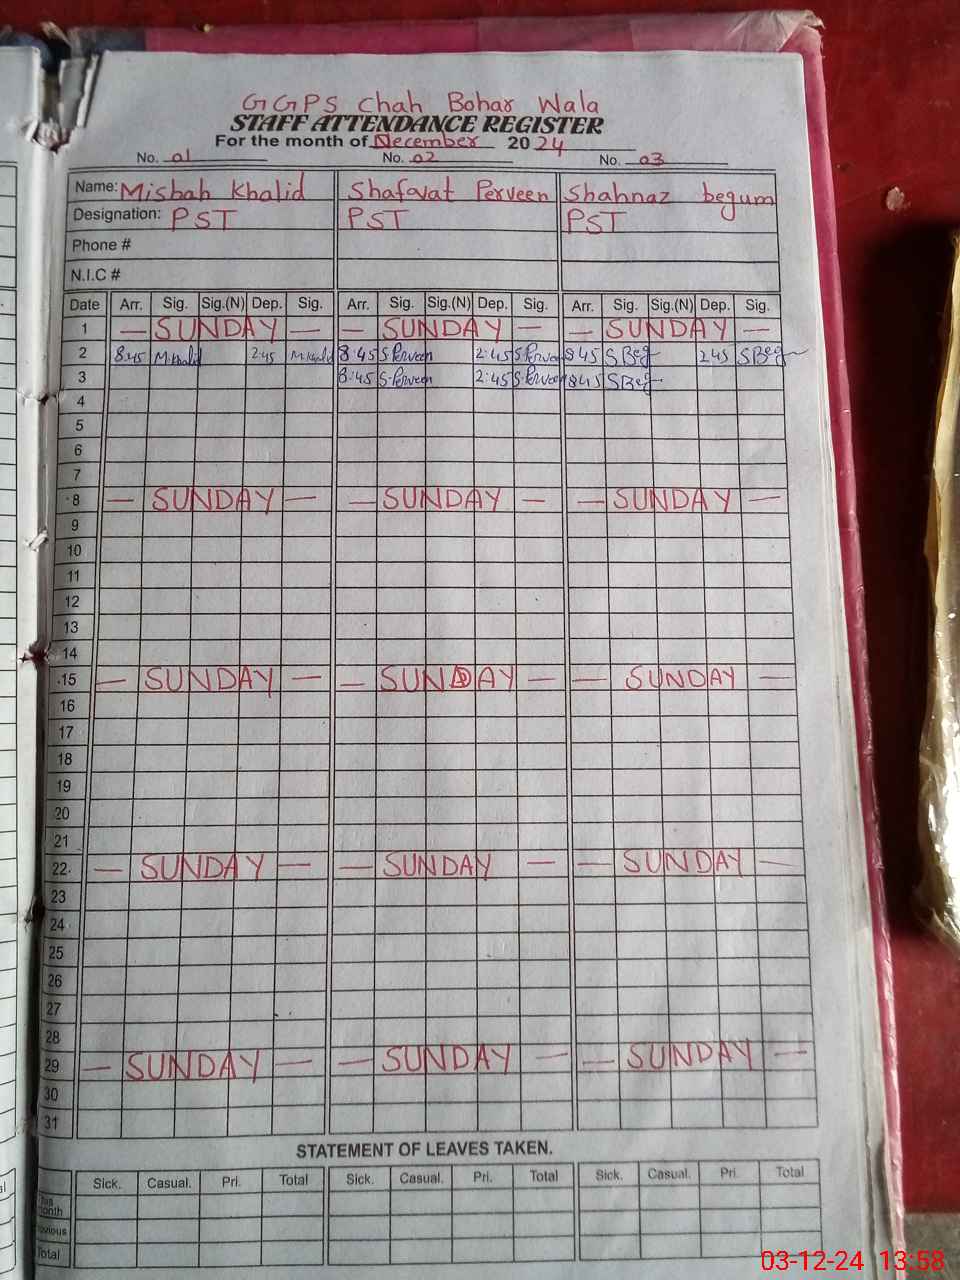 GGPS Chah Bohar Wala
STAFF ATTENDANCE REGISTER
For the month of December 2024
No. 01 No. 02 No. 03
Name: Misbah Khalid Shafavat Perveen Shahnaz begum
Designation: PST PST PST
Phone #
N.I.C #
Date Arr. Sig. Sig.(N) Dep. Sig. Arr. Sig. Sig.(N) Dep. Sig. Arr. Sig. Sig.(N) Dep. Sig.
1 — SUNDAY — — SUNDAY — — SUNDAY —
2 8:45 M.Khalid 2:45 M.Khalid 8:45 S.Perveen 2:45 S.Perveen 8:45 SBeg 2:45 SBeg
3 8:45 S.Perveen 2:45 S.Perveen 8:45 SBeg
4
5
6
7
8 — SUNDAY — — SUNDAY — — SUNDAY —
9
10
11
12
13
14
15 — SUNDAY — — SUNDAY — — SUNDAY —
16
17
18
19
20
21
22 — SUNDAY — — SUNDAY — — SUNDAY —
23
24
25
26
27
28
29 — SUNDAY — — SUNDAY — — SUNDAY —
30
31
STATEMENT OF LEAVES TAKEN.
Sick. Casual. Pri. Total Sick. Casual. Pri. Total Sick. Casual. Pri. Total
month
Total
03-12-24 13:58